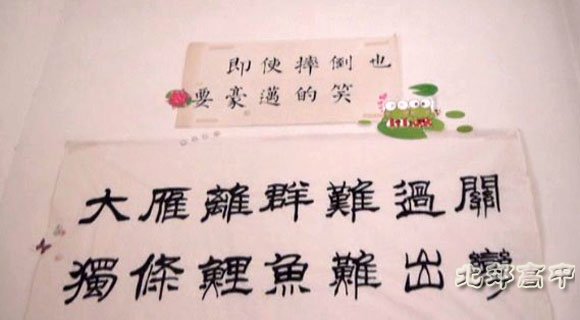 即使摔倒也
要豪邁的笑
大雁離群難過關
獨條鯉魚難出彎
北郊高中